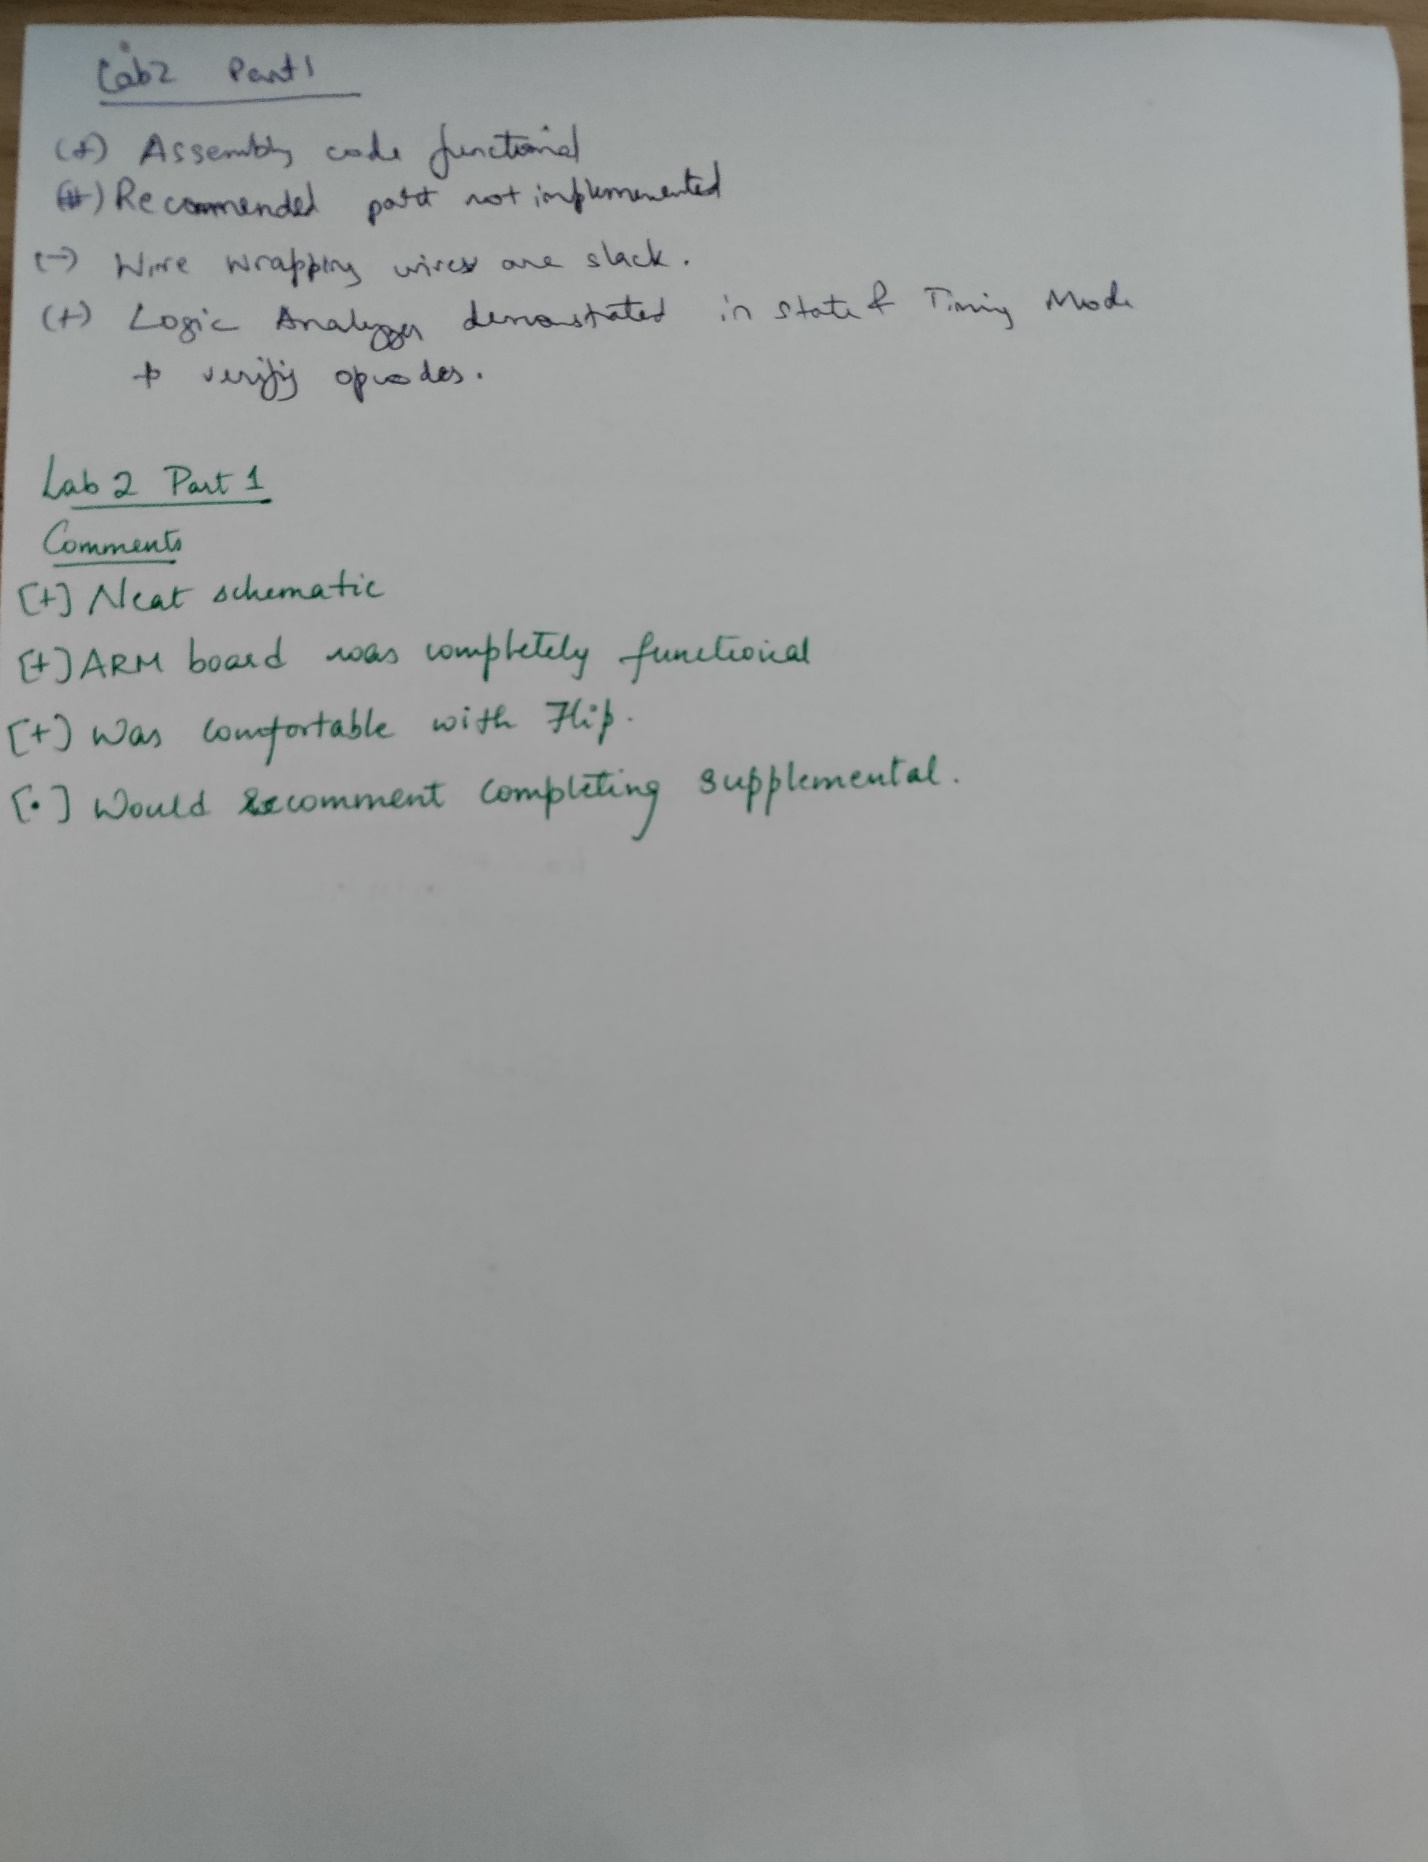 Lab2 Part1
(+) Assembly code functional
(#) Recommended part not implemented
(-) Wire wrapping wires are slack.
(+) Logic Analyzer demonstrated in state & Timing Mode
to verify opcodes.
Lab 2 Part 1
Comments
[+] Neat schematic
[+] ARM board was completely functional
[+] Was comfortable with Flip.
[•] Would recomment completing supplemental.